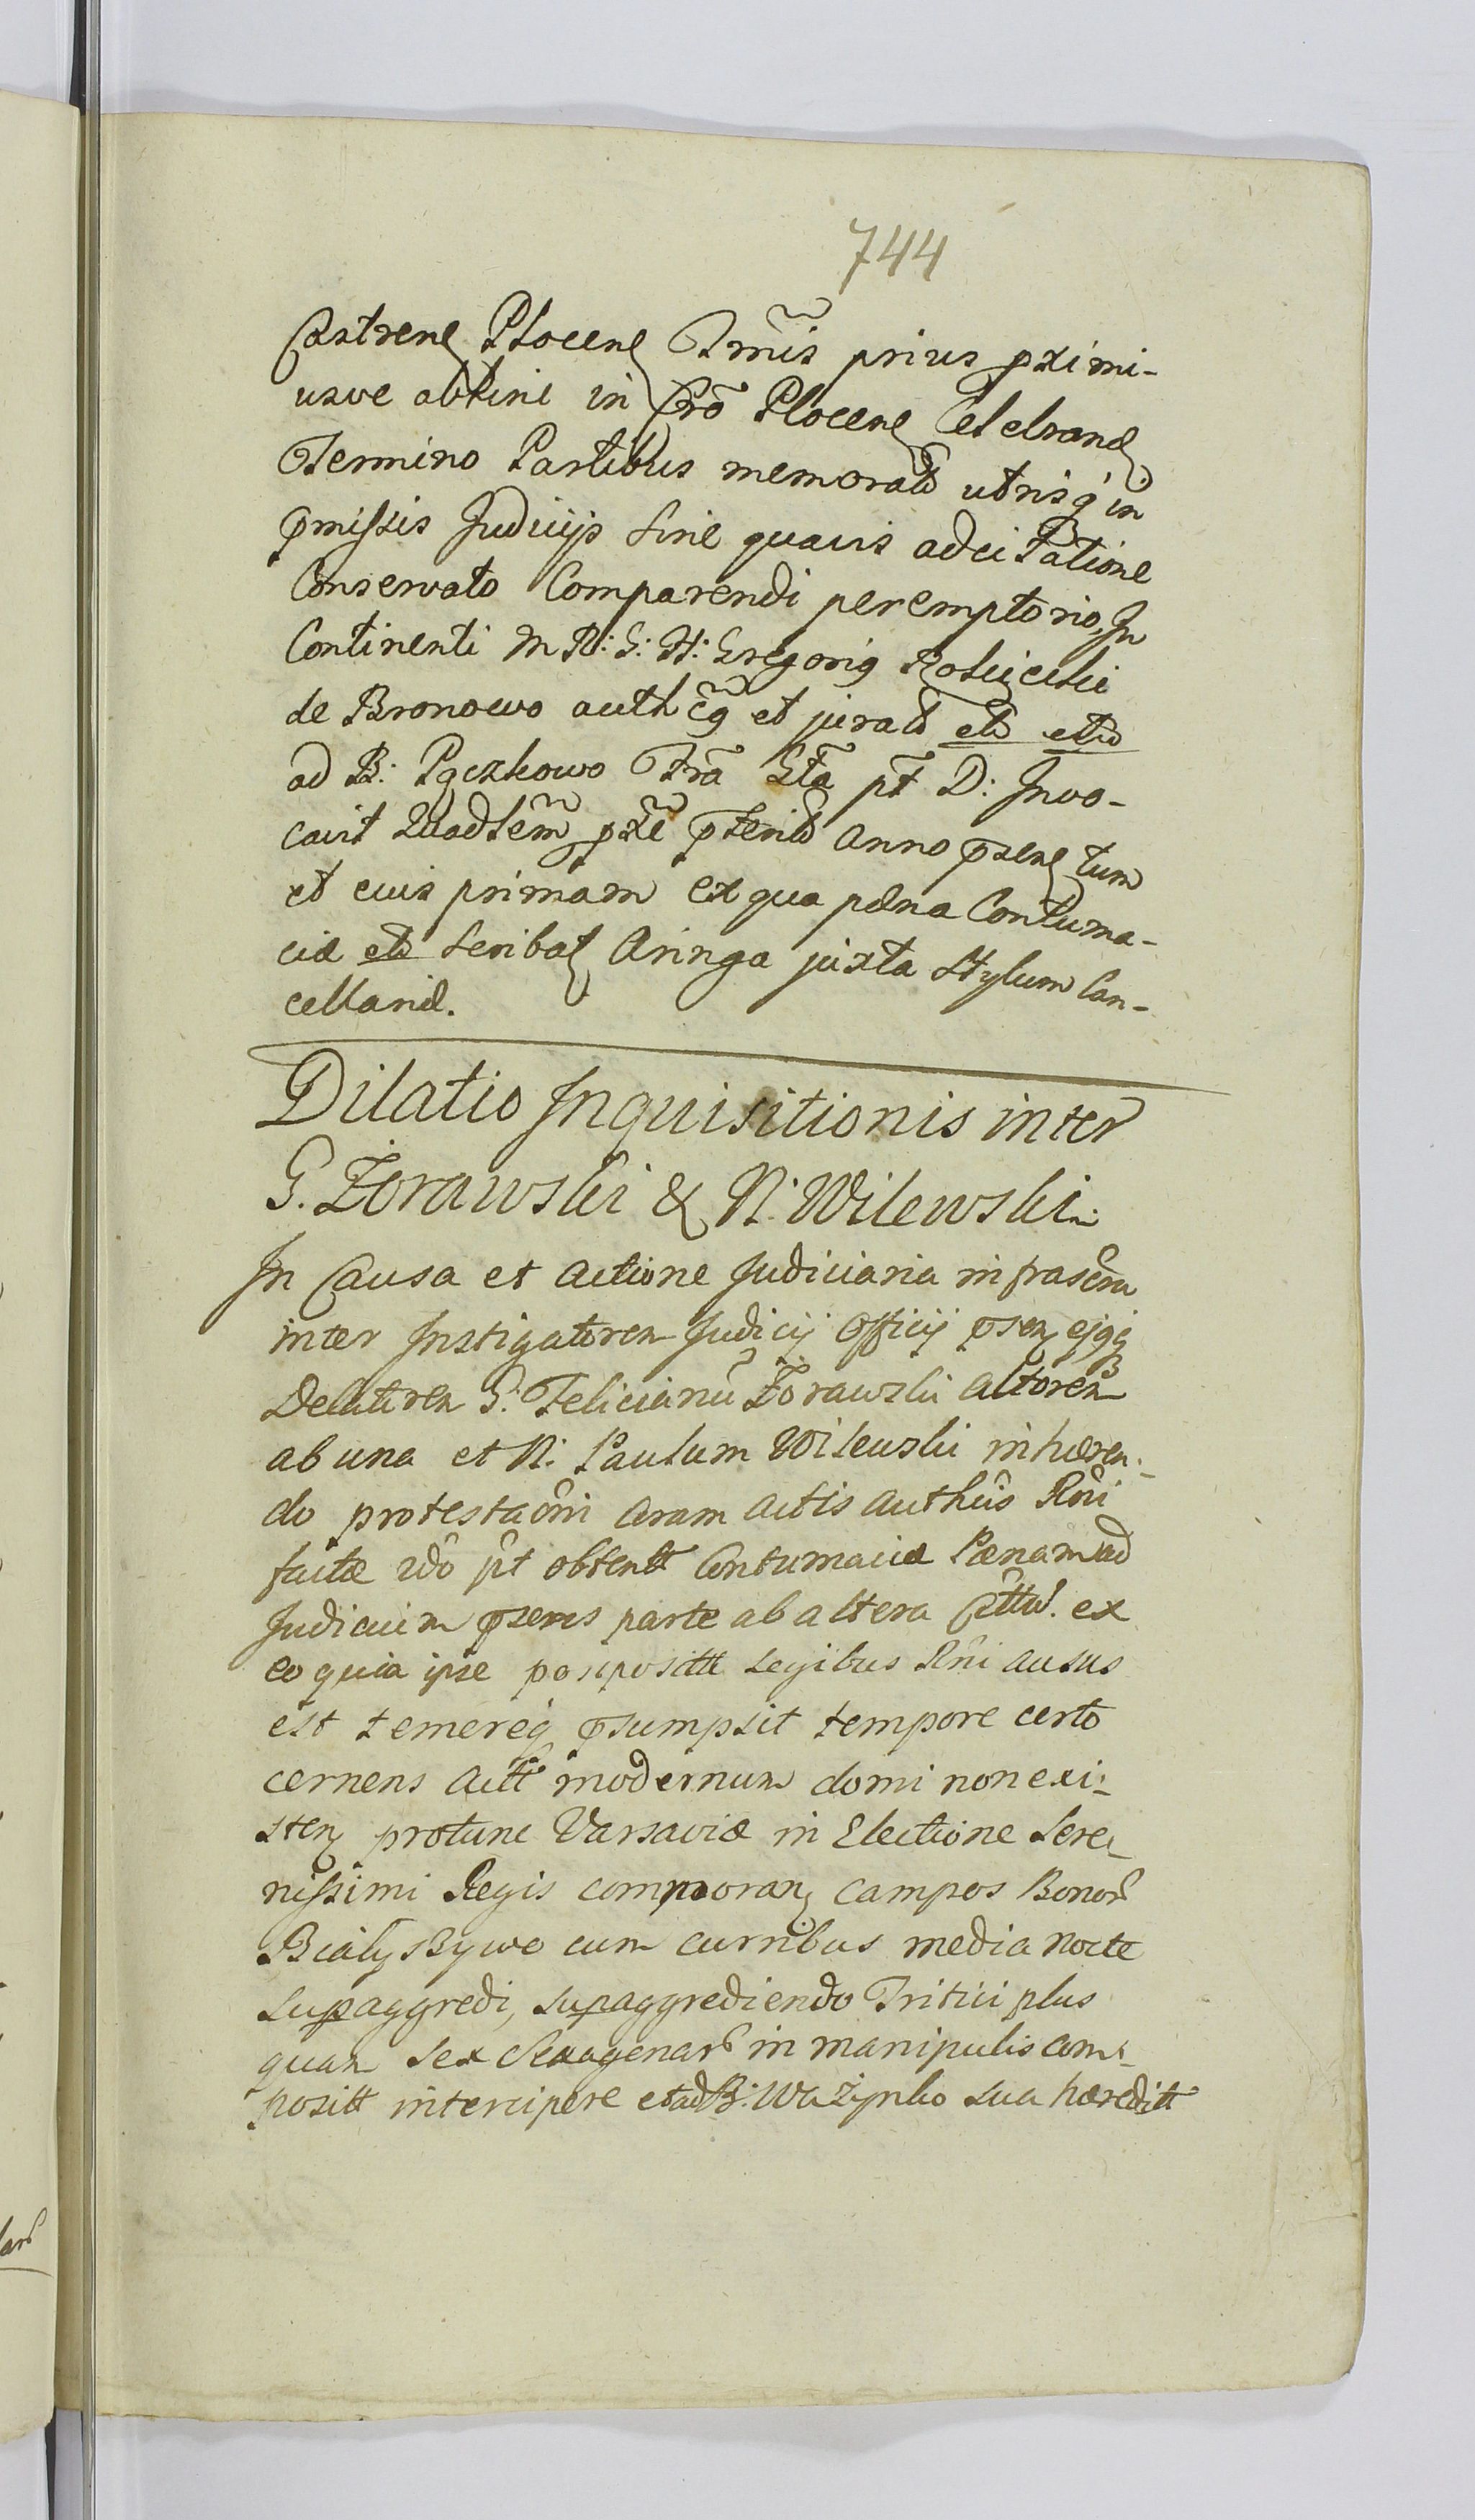 744
Castren Plocen Tmis prius pximi-
usve abhinc in Cro Plocen Celebrand
Termino Partibus memorat utrisq in
pmissis Judicijs sine quavis adcitatione
Conservato Comparendi peremptorio, In
Continenti M R: G: H: Gregorig
de Bronowo authcg et jurat etc etc
ad B: Pączkowo Fra Sta pt D: Invo-
cavit Quadtem pxe pterit Anno psen tum
et eius primam ex qua pæna Contuma-
ciæ etc scribat Aringa juxta Stylum Can-
cellariæ.
Dilatio Inquisitionis inter
G. Żorawski & N. Wilewski.
In Causa et actione Judiciaria infrascru
inter Instigatorem Judicij Officij psen ejqq
Delatorem G. Felicianu Żorawski Actorem
ab una et N: Paulum Wilewski inhæren-
do protestaoni coram actis authcis Rni
factæ ido pt obtent Contumaciæ Pænam ad
Judicium psens parte ab altera Cittu. ex
eo quia ipse postpositt Legibus Rni ausus
est temereq psumpsit tempore certo
cernens Actt modernum domi non exi-
sten protunc Varsaviæ in Electione Sere-
nissimi Regis commoran campos Bonor
Białyszywo cum curribus media nocte
supaggredi, supaggrediendo Tritici plus
quam sex Sexagenar in manipulis com-
positt intercipere et ad B: Ważynko sua hæreditt